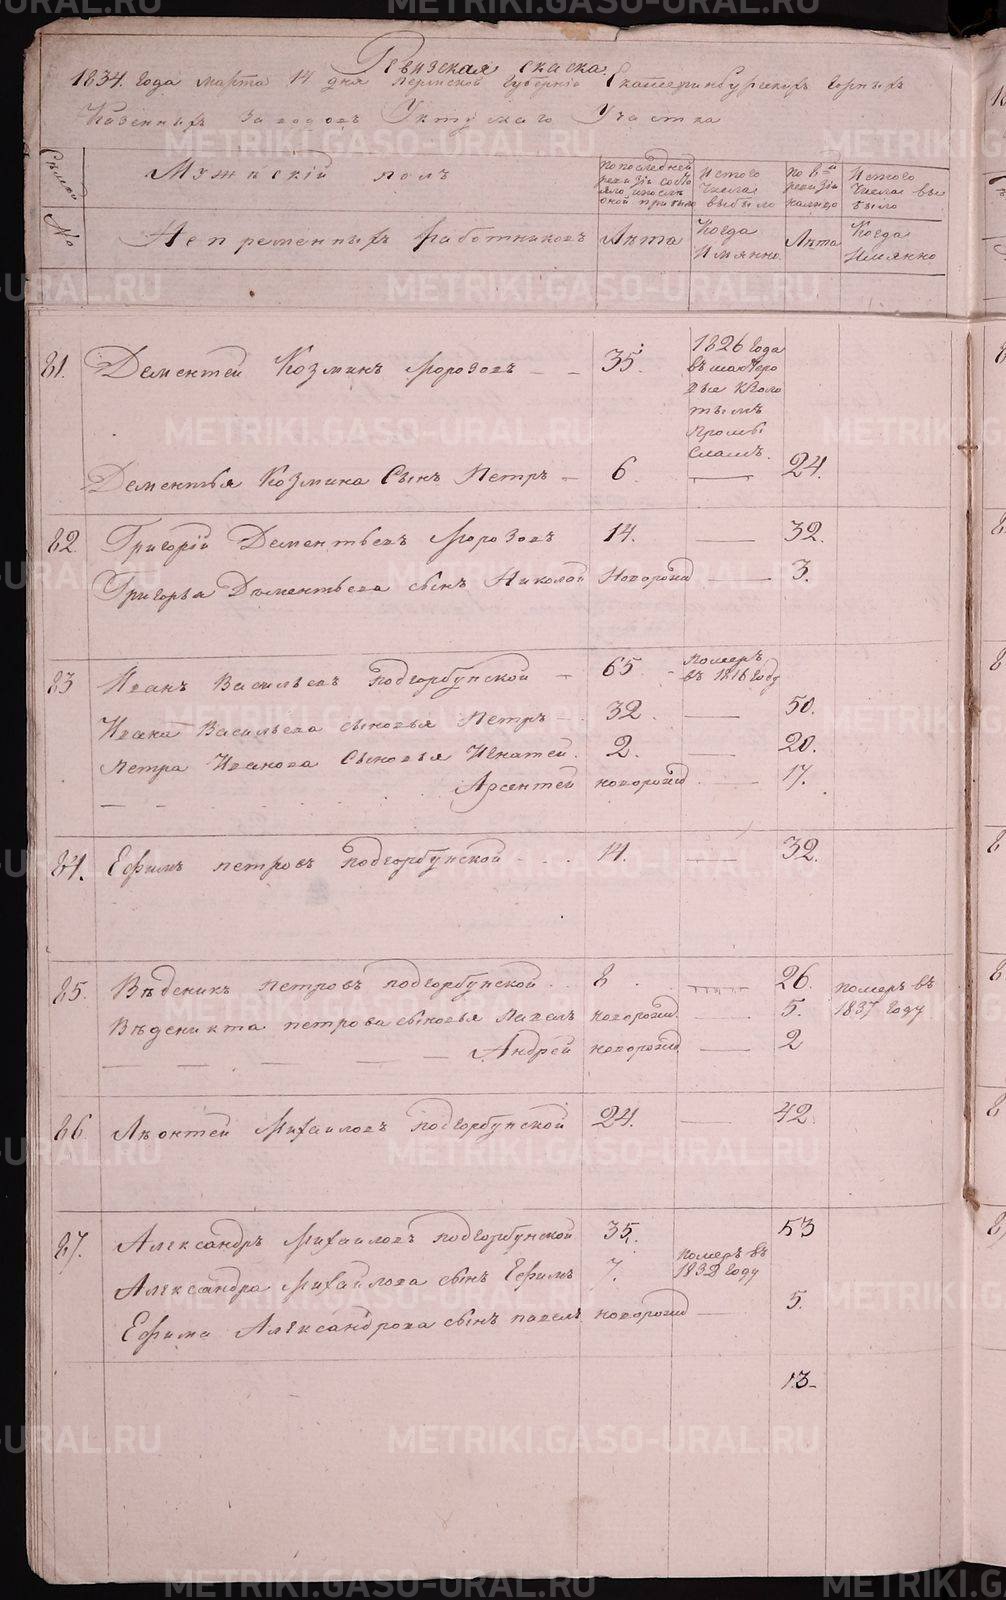 Ревизская скаска
1834. года марта 14 дня Пермской Губернiи Екатеринбургскихъ горныхъ
Казенныхъ Заводовъ Уктускаго Участка
№
Мужескiй полъ
По последней ревизiи состояло и после оной прибыло
Изтого числа выбыло
По 8й ревизiи налицо
Изтого числа выбыло
Непременныхъ работниковъ
Лѣта
Когда Имянно
Лѣта
Когда Имянно
81. Дементей Козминъ Морозовъ 35. 1826 года
къ золотымъ промысламъ.
Дементья Козмина Сынъ Петръ 6 24.
82. Григорiй Дементьевъ Морозовъ 14. 32.
Григорья Дементьева сынъ Николай Новорожд 3.
83 Иванъ Васильевъ Подгорбунской 65 померъ въ 1816 году
Ивана Васильева сыновья Петръ 32. 50.
Петра Иванова Сыновья Игнатей. 2. 20.
Арсентей новорожд 17.
84. Ефимъ петровъ Подгорбунской 14. 32.
85. Вѣденикъ петровъ подгорбунской 8 26. померъ въ 1837 году
Вѣденикта петрова сыновья Павелъ новорожд. 5.
Андрей новорожд 2
86. Леонтей Михаиловъ подгорбунской 24. 42.
87. Александръ Михаиловъ подгорбунской 35. 53
Александра Михайлова сынъ Ефимъ 7. померъ въ 1832 году
Ефима Александрова сынъ павелъ новорожд 5.
13
METRIKI.GASO-URAL.RU